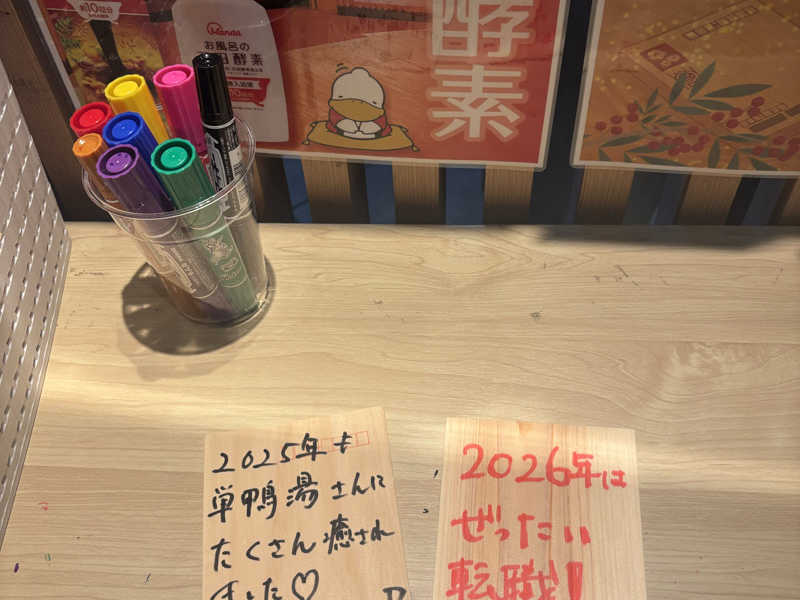 お10回分
Manda
お風呂の
酵素
酵
素
2025年も
巣鴨湯さんに
たくさん癒され
ました♡
2026年は
ぜったい
転職!